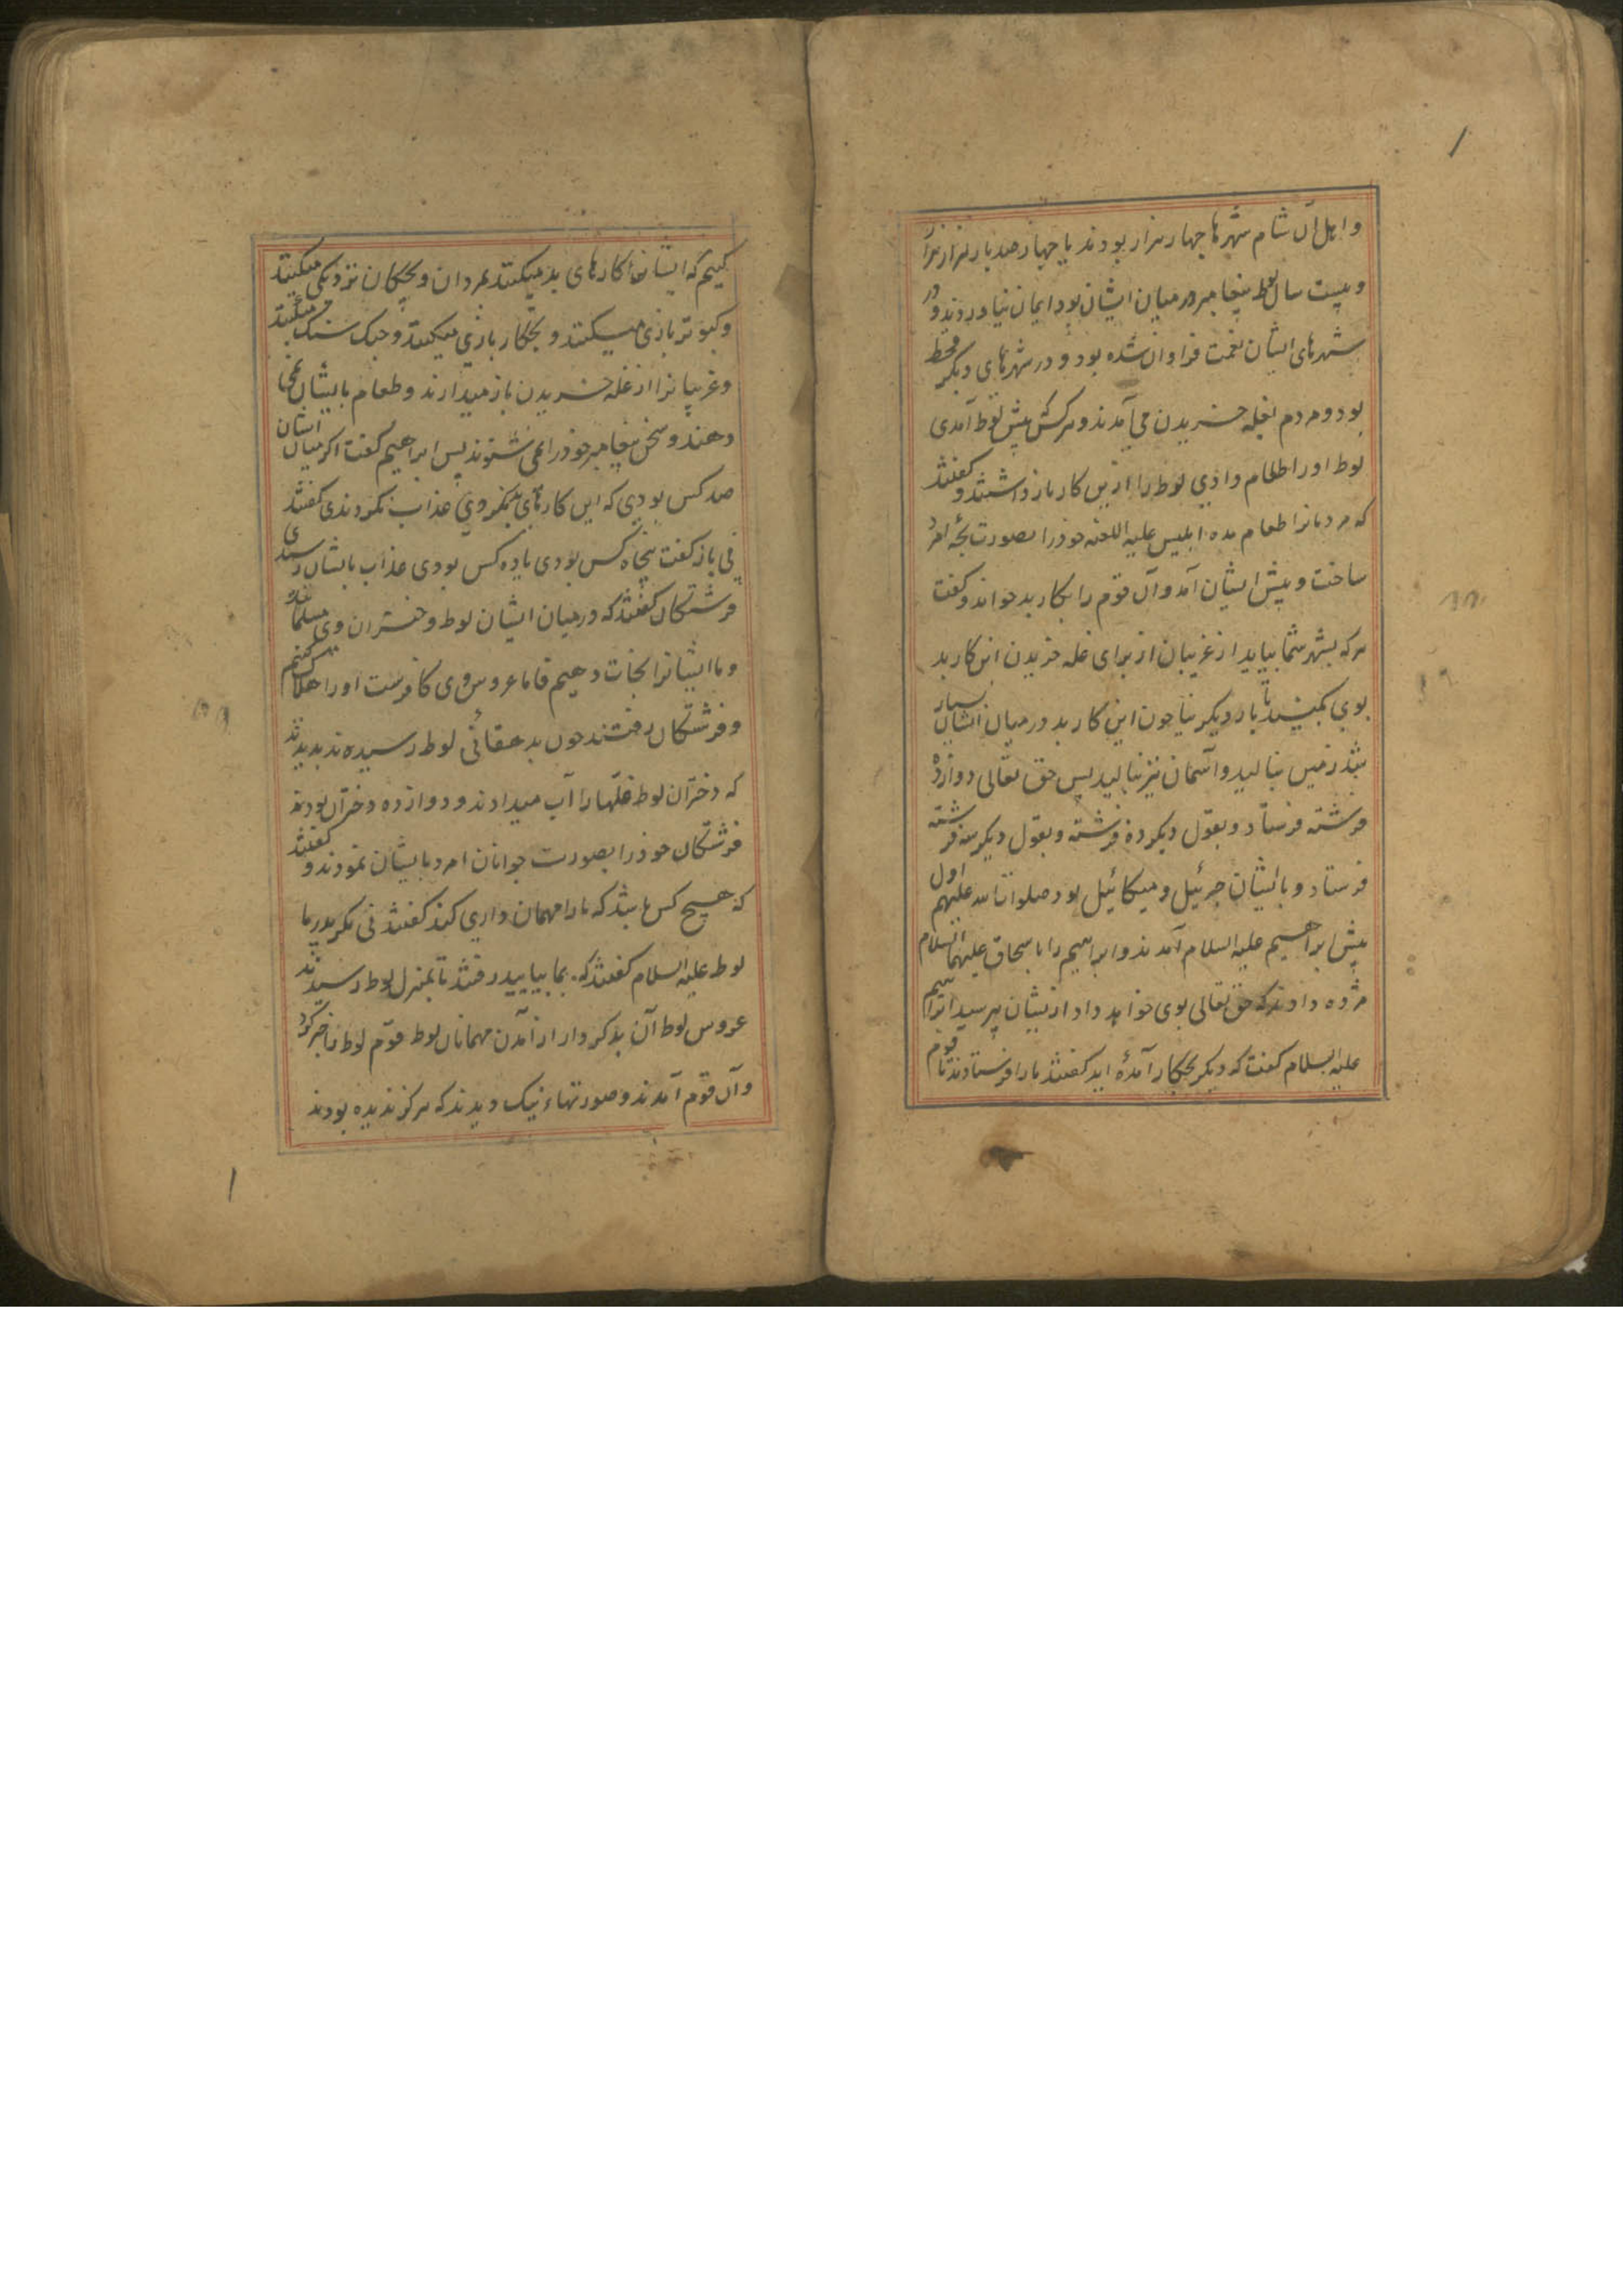 و اهل آن شام شهرها چهار هزار بودند یا چهار صد بار هزار هزار
و بیست سال لوط پیغامبر در میان ایشان بود ایمان نیاوردند و در
شهرهای ایشان نعمت فراوان شده بود و در شهرهای دیگر قحط
بود و مردم بغله خریدن می آمدند و هر کس پیش لوط آمدی
لوط او را طعام دادی لوط را ازین کار باز داشتند و گفتند
که مردمانرا طعام مده ابلیس علیه اللعنه خوذ را بصورت بچه امرد
ساخت و پیش ایشان آمد و آن قوم را بکار بد خواند و گفت
هر که بشهر شما بیاید از غریبان از برای غله خریدن این کار بد
بوی بکنید تا بار دیگر نیاید چون این کار بد در میان ایشان بسیار
شد زمین بنالید و آسمان نیز بنالید پس حق تعالی دوازده
فرشته فرستاد و بقول دیگر ده فرشته و بقول دیگر سه فرشته
فرستاد و با ایشان جبرئیل و میکائیل بود صلوات الله علیهم اول
پیش ابراهیم علیه السلام آمدند و ابراهیم را باسحاق علیهما السلام
مژده دادند که حق تعالی بوی خواهد داد ازیشان پرسید ابراهیم
علیه السلام گفت که دیگر بچکار آمدهٔ اید گفتند ما را فرستادند تا قوم
کنیم که ایشان کارهای بد میکنند بمردان و بچکان نزدیکی میکنند
و کبوتر بازی میکنند و بچکار بازی میکنند و جنک سنک میکنند
و غریبانرا از غله خریدن باز میدارند و طعام بایشان نمی
دهند و سخن پیغامبر خوذ را نمی شنوند پس ابراهیم گفت اکر میان ایشان
صد کس بودی که این کارهای بد نکردی عذاب نکردندی گفتند
نی باز گفت پنجاه کس بودی یا ده کس بودی عذاب بایشان رسیدی
فرشتکان گفتند که در میان ایشان لوط و دختران وی مسلمانند
و ما ایشانرا نجات دهیم فاما عروس وی کافرست او را هلاک کنیم
و فرشتکان رفتند چون بدهقانی لوط رسیدند بدیدند
که دختران لوط غلهٔا را آب میدادند و دوازده دختران بودند
فرشتکان خوذ را بصورت جوانان امرد بایشان نمودند و گفتند
که هیچ کس باشد که ما را مهمان داری کند گفتند نی مکر پدر ما
لوط علیه السلام گفتند که بما بیایید رفتند تا بمنزل لوط رسیدند
عروس لوط آن بدکردار از آمدن مهمانان لوط قوم لوط را خبر کرد
و آن قوم آمدند و صورتهاء نیک دیدند که هرکز ندیده بودند